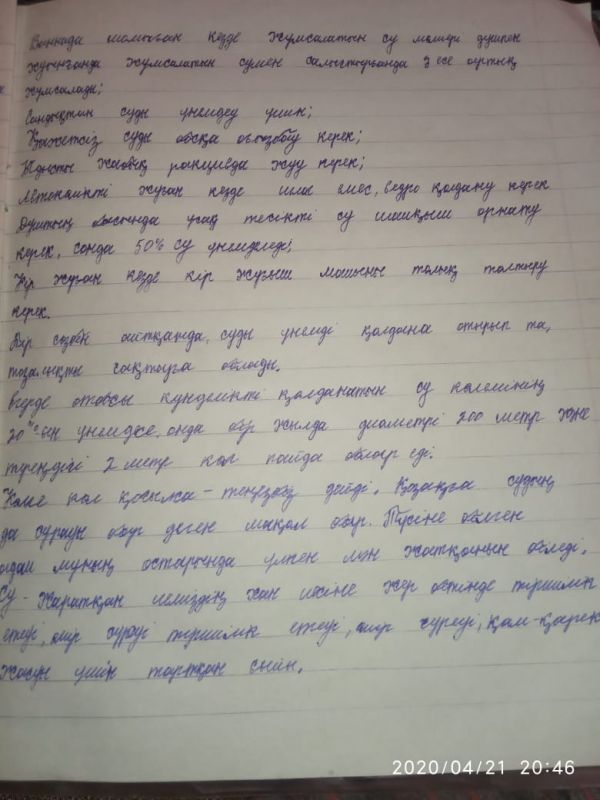 Ваннада шомылған кезде жұмсалатын су мөлшері душпен
жуынғанда жұмсалатын сумен салыстырғанда 3 есе артық
жұмсалады;
Сондықтан суды үнемдеу үшін;
Қажетсіз суды босқа ағызбау керек;
Ыдысты жабық раковинада жуу керек;
Автокөлікті жуған кезде шланг емес, ведро қолдану керек
Душтың басында ұсақ тесікті су шашқыш орнату
керек, сонда 50% су үнемделеді;
Кір жуған кезде кір жуғыш машинаны толық толтыру
керек.
Бір сөзбен айтқанда, суды үнемді қолдана отырып та,
тазалықты сақтауға болады.
Егерде отбасы күнделікті қолданатын су көлемінің
20%-ын үнемдесе, онда әр жылда диаметрі 200 метр және
тереңдігі 2 метр көл пайда болар еді.
Көлге көл қосылса - теңізбіз дейді. Қазақта судың
да сұрауы бар деген мақал бар. Түсіне білген
адам мұның астарында үлкен мән жатқанын біледі.
Су - Жаратқан иеміздің жан иесіне жер бетінде тіршілік
етеді, өмір сүреді тіршілік етеді, өмір сүреді, қам-қарекет
жасау үшін тартқан сыйы.
2020/04/21 20:46